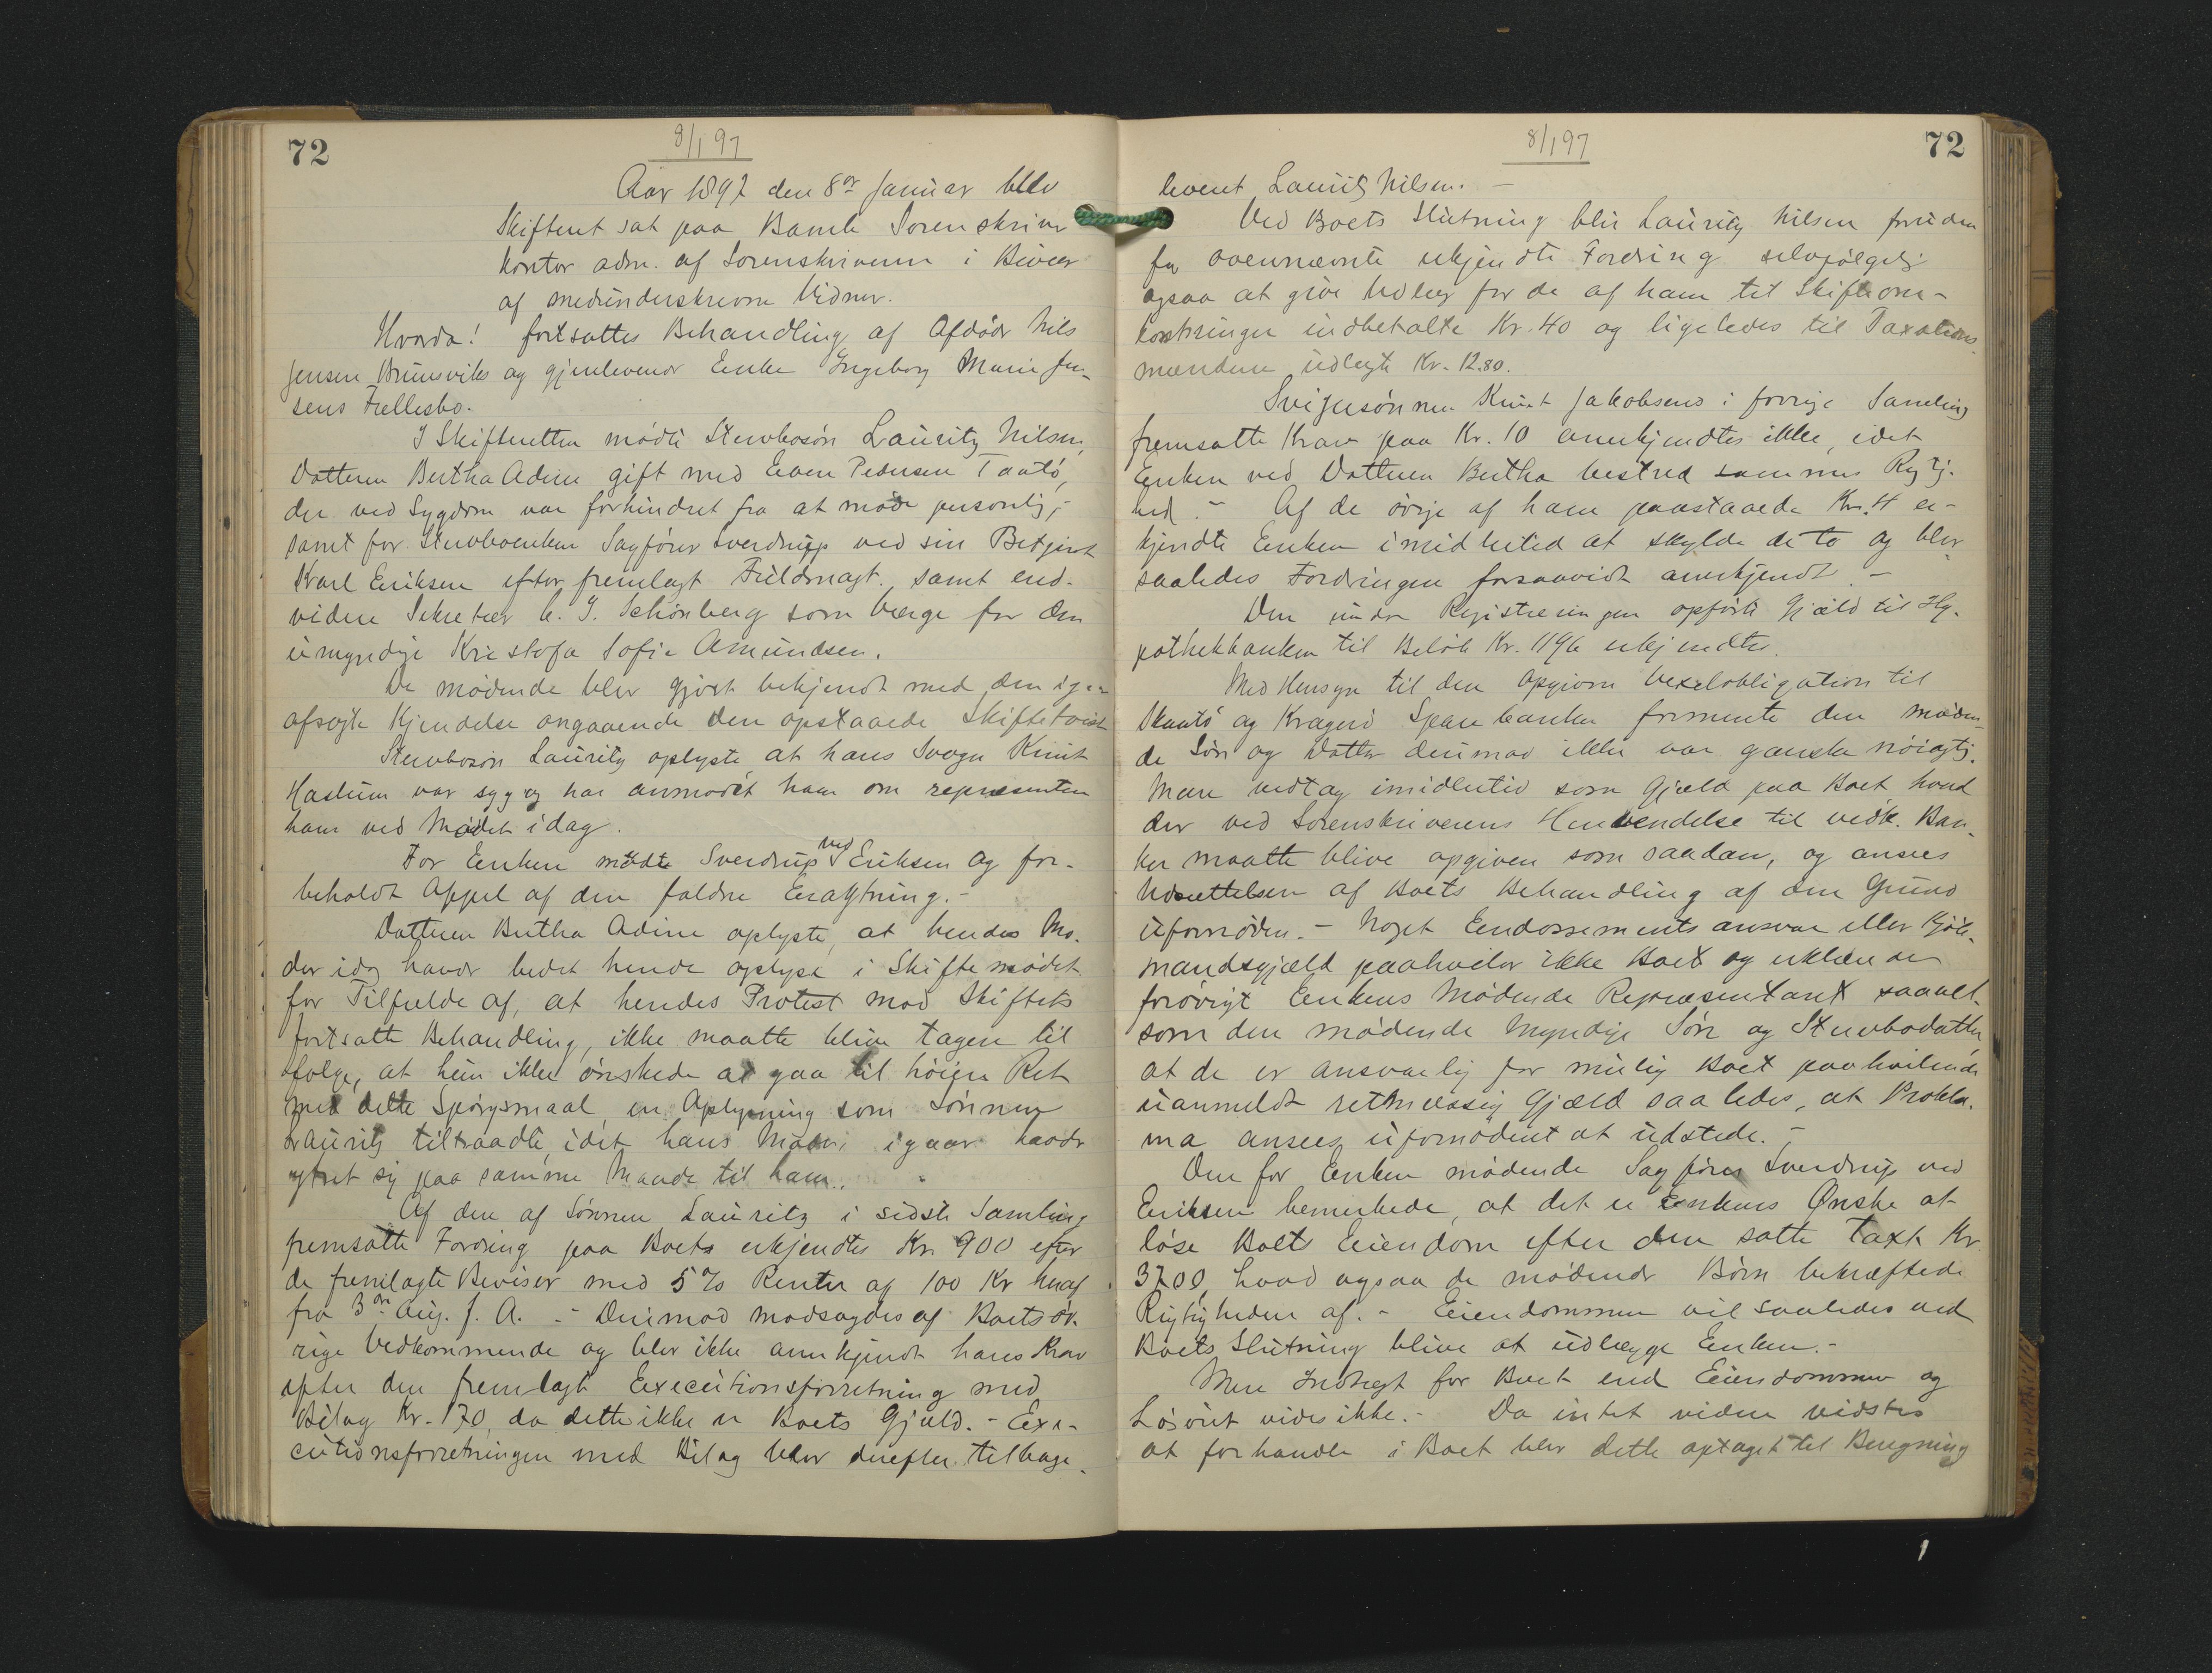 72
8/1 97
Aar 1897 den 8de Januar blev
Skifteret sat paa Bamle Sorenskriver
kontor adm. af Sorenskriveren i Bivær
af medunderskrevne Vidner.
Hvorda! fortsattes Behandling af Afdøde Nils
Jensen Brunsviks og gjenlevende Enke Ingeborg Marie Jen-
sens Fællesbo.
I Skifteretten mødte Stervbosøn Lauritz Nilsen,
Datteren Bertha Adine gift med Even Pedersen Taatø,
der ved Sygdom var forhindret fra at møde personlig,-
samt for Stervboenken Sagfører Sverdrup ved sin Betjent
Karl Eriksen efter fremlagt Fuldmagt. samt end-
videre Sekretær C. J. Schønberg som Værge for den
umyndige Kristofa Sofie Amundsen.
De mødende blev gjort bekjendt med den igaar
afsagte Kjendelse angaaende den opstaaede Skiftetvist
Stervbosøn Lauritz oplyste at hans Svoger Knut
Haslum var syg og har anmodet ham om representere
ham ved Mødet idag.
For Enken mødte Sverdrup ved Eriksen og for-
beholdt Appel af den faldne Eragtning.-
Datteren Bertha Adine oplyste, at hendes Mo-
der idag havde bedet hende oplyse i Skiftemødet
for Tilfælde af, at hendes Protest mod Skiftets
fortsatte Behandling, ikke maatte blive tagen til
følge, at hun ikke ønskede at gaa til høiere Ret
med dette Spørgsmaal, en Oplysning som Sønnen
Lauritz tiltraadte, idet hans Moder igaar havde
ytret sig paa samme Maade til ham.
Af den af Sønnen Lauritz i sidste Samling
fremsatte Fordring paa Boets erkjendtes Kr. 900 efter
de fremlagte Beviser med 5 % Renter af 100 Kr heraf
fra 3de Aug. f. A. - Derimod modsagdes af Boets øv-
rige Vedkommende og blev ikke anerkjendt hans Krav
efter den fremlagte Executionsforretning med
Bilag Kr. 170, da dette ikke er Boets Gjæld. - Exe-
cutionsforretningen med Bilag blev derefter tilbage-
8/1 97
72
leveret Lauritz Nilsen. -
Ved Boets Slutning blir Lauritz Nilsen foruden
for ovennævnte erkjendte Fordring selvfølgelig
ogsaa at give Udlæg for de af ham til Skifteom-
kostninger indbetalte Kr. 40 og ligeledes til Taxations-
mændene udlagte Kr. 12.80.
Svigersønnen Knut Jakobsens i forrige Samling
fremsatte Krav paa Kr. 10 anerkjendtes ikke, idet
Enken ved Datteren Bertha bestred sammes Rigtig-
hed. - Af de øvrige af ham paastaaede Kr. 4 er-
kjendte Enken imidlertid at skylde de to og blev
saaledes Fordringen forsaavidt anerkjendt. -
Den under Registreringen opførte Gjæld til Hy-
pothekbanken til Beløb Kr. 1196 erkjendtes.
Med Hensyn til den opgivne Vexelobligation til
Skaatø og Kragerø Sparebanker formente den møden-
de Søn og Datter denmod ikke var ganske nøiagtig.
Man vedtog imidlertid som Gjæld paa Boet hvad
der ved Sorenskriverens Henvendelse til vedk. Ban-
ker maatte blive opgiven som saadan, og ansees
Udsættelsen af Boets Behandling af den Grund
ufornøden. - Noget Endossements ansvar eller Kjøb-
mandsgjæld paahviler ikke Boet og erklærede
forøvrigt Enkens Mødende Repræsentant saavel-
som den mødende Myndige Søn og Stervbodatter
at de er ansvarlig for mulig Boet paahvilende
uanmeldt retmæssig Gjæld saaledes, at Prokla-
ma ansees ufornødent at udstede. -
Den for Enken mødende Sagfører Sverdrup ved
Eriksen bemerkede, at det er Enkens Ønske at
løse Boets Eiendom efter den satte Taxt Kr.
3700, hvad ogsaa de mødende Børn bekræftede
Rigtigheden af. - Eiendommen vil saaledes ved
Boets Slutning blive at udlægge Enken. -
Mere Indtægt for Boet end Eiendommen og
Løsøret vides ikke. - Da intet videre vidstes
at forhandle i Boet blev dette optaget til Beregning